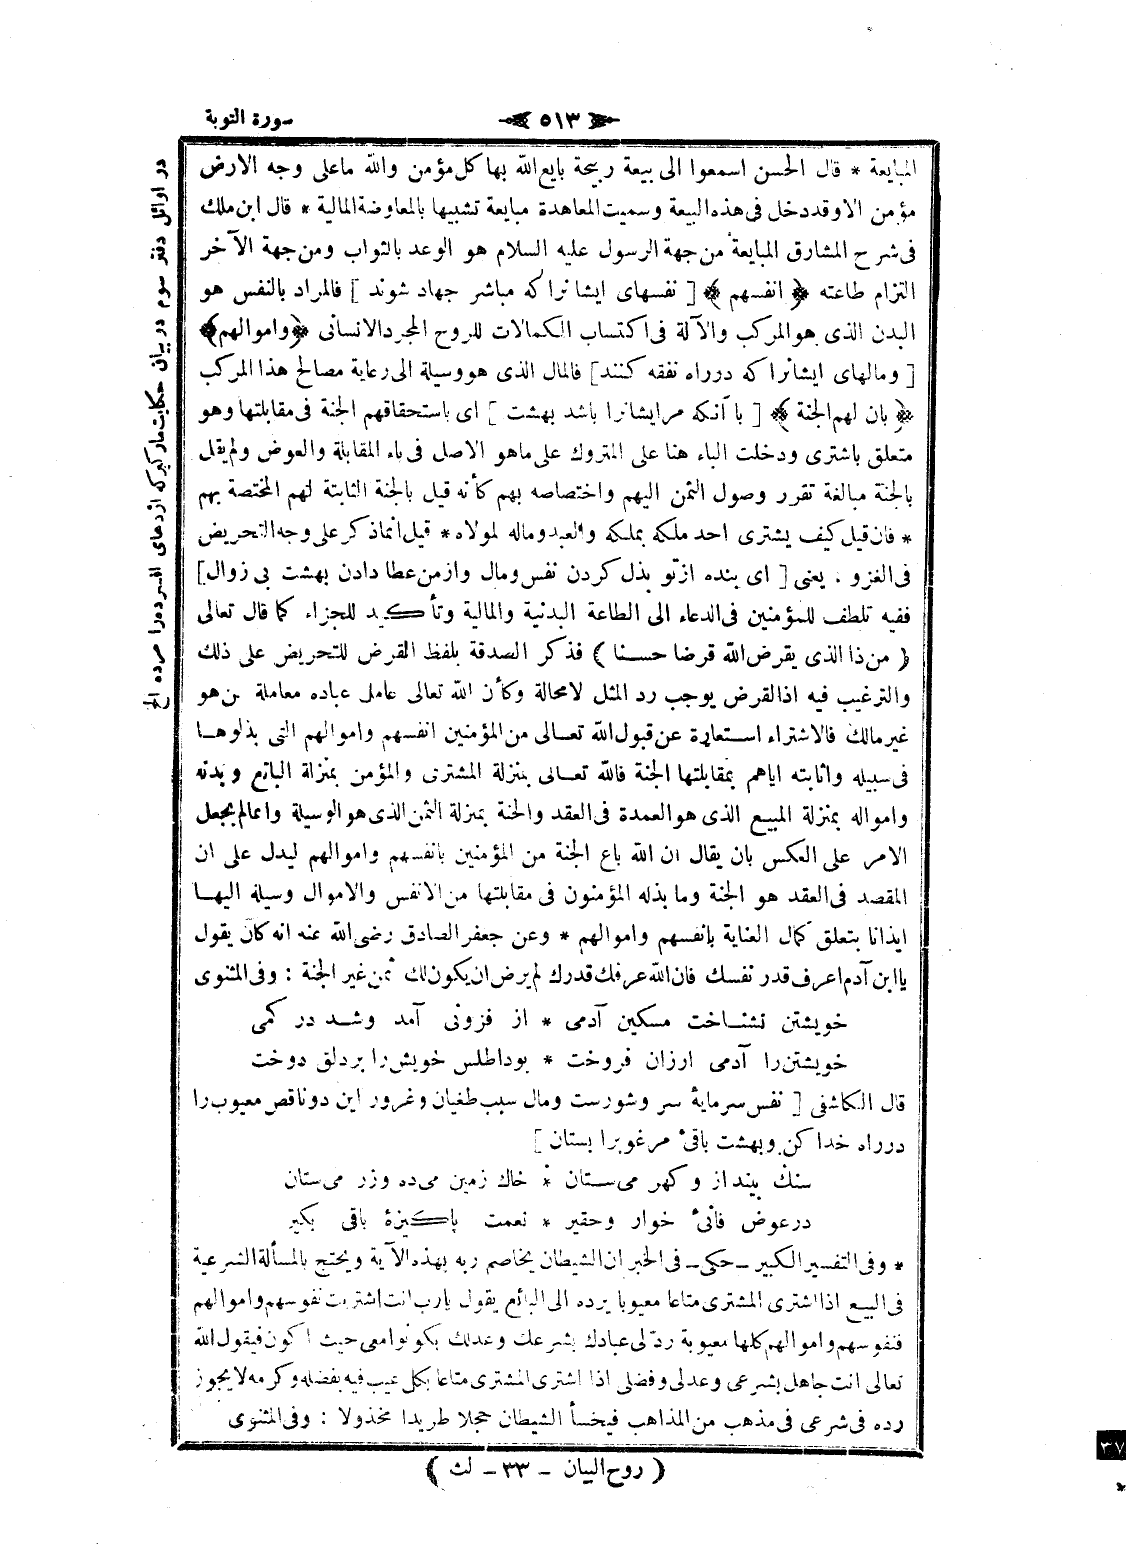 سورة التوبة
﴿ ٥١٣ ﴾
المبايعة * قال الحسن اسمعوا الى بيعة ربيحة بايع الله بها كل مؤمن والله ما على وجه الارض
مؤمن الا وقد دخل فى هذه البيعة وسميت المعاهدة مبايعة تشبيها بالمعاوضة المالية * قال ابن ملك
فى شرح المشارق المبايعة من جهة الرسول عليه السلام هو الوعد بالثواب ومن جهة الآخر
التزام طاعته ﴿ انفسهم ﴾ [ نفسهاى ايشانرا كه مباشر جهاد شوند ] فالمراد بالنفس هو
البدن الذى هو المركب والآلة فى اكتساب الكمالات للروح المجرد الانسانى ﴿ واموالهم ﴾
[ ومالهاى ايشانرا كه درراه نفقه كنند ] فالمال الذى هو وسيلة الى رعاية مصالح هذا المركب
﴿ بان لهم الجنة ﴾ [ با آنكه مر ايشانرا باشد بهشت ] اى باستحقاقهم الجنة فى مقابلتها وهو
متعلق باشترى ودخلت الباء هنا على المتروك على ما هو الاصل فى باء المقابلة والعوض ولم يقل
بالجنة مبالغة تقرر وصول الثمن اليهم واختصاصه بهم كأنه قيل بالجنة الثابتة لهم المختصة بهم
* فان قيل كيف يشترى احد ملكه بملكه والعبد وماله لمولاه * قيل انما ذكر على وجه التحريض
فى الغزو . يعنى [ اى بنده از تو بذل كردن نفس ومال واز من عطا دادن بهشت بى زوال ]
ففيه تلطف للمؤمنين فى الدعاء الى الطاعة البدنية والمالية وتأكيد للجزاء كما قال تعالى
( من ذا الذى يقرض الله قرضا حسنا ) فذكر الصدقة بلفظ القرض للتحريض على ذلك
والترغيب فيه اذ القرض يوجب رد المثل لا محالة وكأن الله تعالى عامل عباده معاملة من هو
غير مالك فالاشتراء استعارة عن قبول الله تعالى من المؤمنين انفسهم واموالهم التى بذلوها
فى سبيله واثابته اياهم بمقابلتها الجنة فالله تعالى بمنزلة المشترى والمؤمن بمنزلة البائع وبدنه
وامواله بمنزلة المبيع الذى هو العمدة فى العقد والجنة بمنزلة الثمن الذى هو الوسيلة وانما لم يجعل
الامر على العكس بان يقال ان الله باع الجنة من المؤمنين بانفسهم واموالهم ليدل على ان
المقصد فى العقد هو الجنة وما بذله المؤمنون فى مقابلتها من الانفس والاموال وسيلة اليها
ايذانا بتعلق كمال العناية بانفسهم واموالهم * وعن جعفر الصادق رضى الله عنه انه كان يقول
يا ابن آدم اعرف قدر نفسك فان الله عرفك قدرك لم يرض ان يكون لك ثمن غير الجنة : وفى المثنوى
خويشتن نشناخت مسكين آدمى * از فزونى آمد وشد در كمى
خويشتن را آدمى ارزان فروخت * بود اطلس خويش را بر دلق دوخت
قال الكاشفى [ نفس سرمايهٔ سر وشورست ومال سبب طغيان وغرور اين دو ناقص معيوب را
درراه خدا كن وبهشت باقىٔ مرغوبرا بستان ]
سنك بينداز وكهر مى ستان * خاك زمين مى ده وزر مى ستان
در عوض فانىٔ خوار وحقير * نعمت پاكيزهٔ باقى بكير
* وفى التفسير الكبير ـ حكى ـ فى الخبر ان الشيطان يخاصم ربه بهذه الآية ويحتج بالمسألة الشرعية
فى البيع اذا اشترى المشترى متاعا معيوبا يرده الى البائع يقول يارب انت اشتريت نفوسهم واموالهم
فنفوسهم واموالهم كلها معيوبة رد لى عبادك بشرعك وعدلك يكونوا معى حيث اكون فيقول الله
تعالى انت جاهل بشرعى وعدلى وفضلى اذا اشترى المشترى متاعا بكل عيب فيه بفضله وكرمه لا يجوز
رده فى شرعى فى مذهب من المذاهب فيخسأ الشيطان خجلا طريدا مخذولا : وفى المثنوى
( روح البيان ـ ٣٣ ـ لث )
در اوائل دفتر سوم در بيان حكايت ماركير كه اژدهاى افسرده را مرده الخ
٣٧